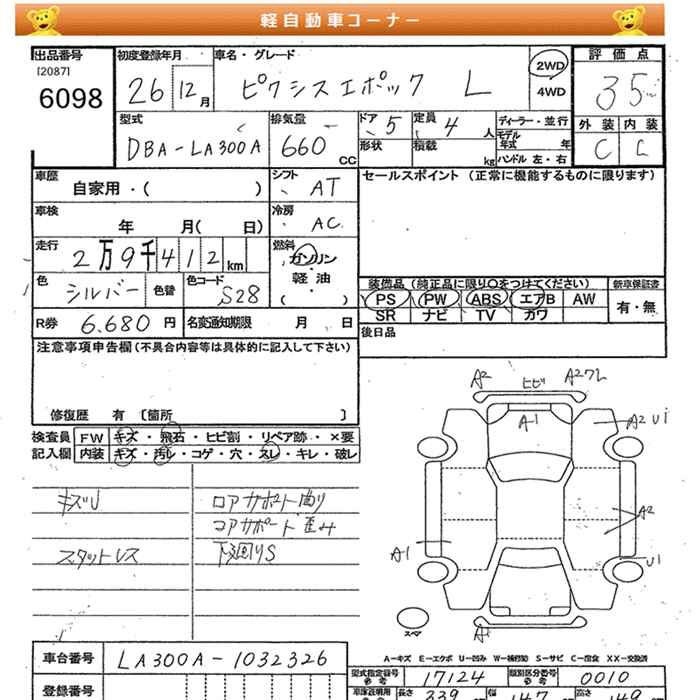 軽自動車コーナー
出品番号 初度登録年月 車名・グレード 評価点
[2087]
6098 26 12月 ピクシスエポック L 2WD 35
4WD
型式 排気量 ドア 5 定員 4人 ディーラー・並行 外装 内装
DBA-LA300A 660 CC 形状 積載 kg モデル年式 年 C C
ハンドル 左・右
車歴 シフト セールスポイント (正常に機能するものに限ります)
自家用・( ) AT
車検 冷房
年 月( 日) AC
走行 燃料
2万9千412km ガソリン
軽油
( )
色 シルバー 色替 色コード S28
装備品 (純正品に限り○をつけてください) 新車保証書
PS PW ABS エアB AW 有・無
SR ナビ TV カワ
R券 6.680円 名変通知期限 月 日
後日品
注意事項申告欄(不具合内容等は具体的に記入して下さい)
修復歴 有 [箇所 ]
検査員 FW キズ・飛石・ヒビ割・リペア跡・×要
記入欄 内装 キズ・汚レ・コゲ・穴・スレ・キレ・破レ
キズU ロアサポート曲り
コアサポート歪み
スタットレス 下廻りS
A2 ヒビ A2ワレ
A1 A2 U1
A2
A1 U1
スペア
A-キズ E-エクボ U-凹み W-補修跡 S-サビ C-腐食 XX-交換済
車台番号 LA300A-1032326
型式指定番号 参考 17124 類別区分番号 参考 0010
登録番号 車庫証明用 長さ 339 幅 147 高さ 149